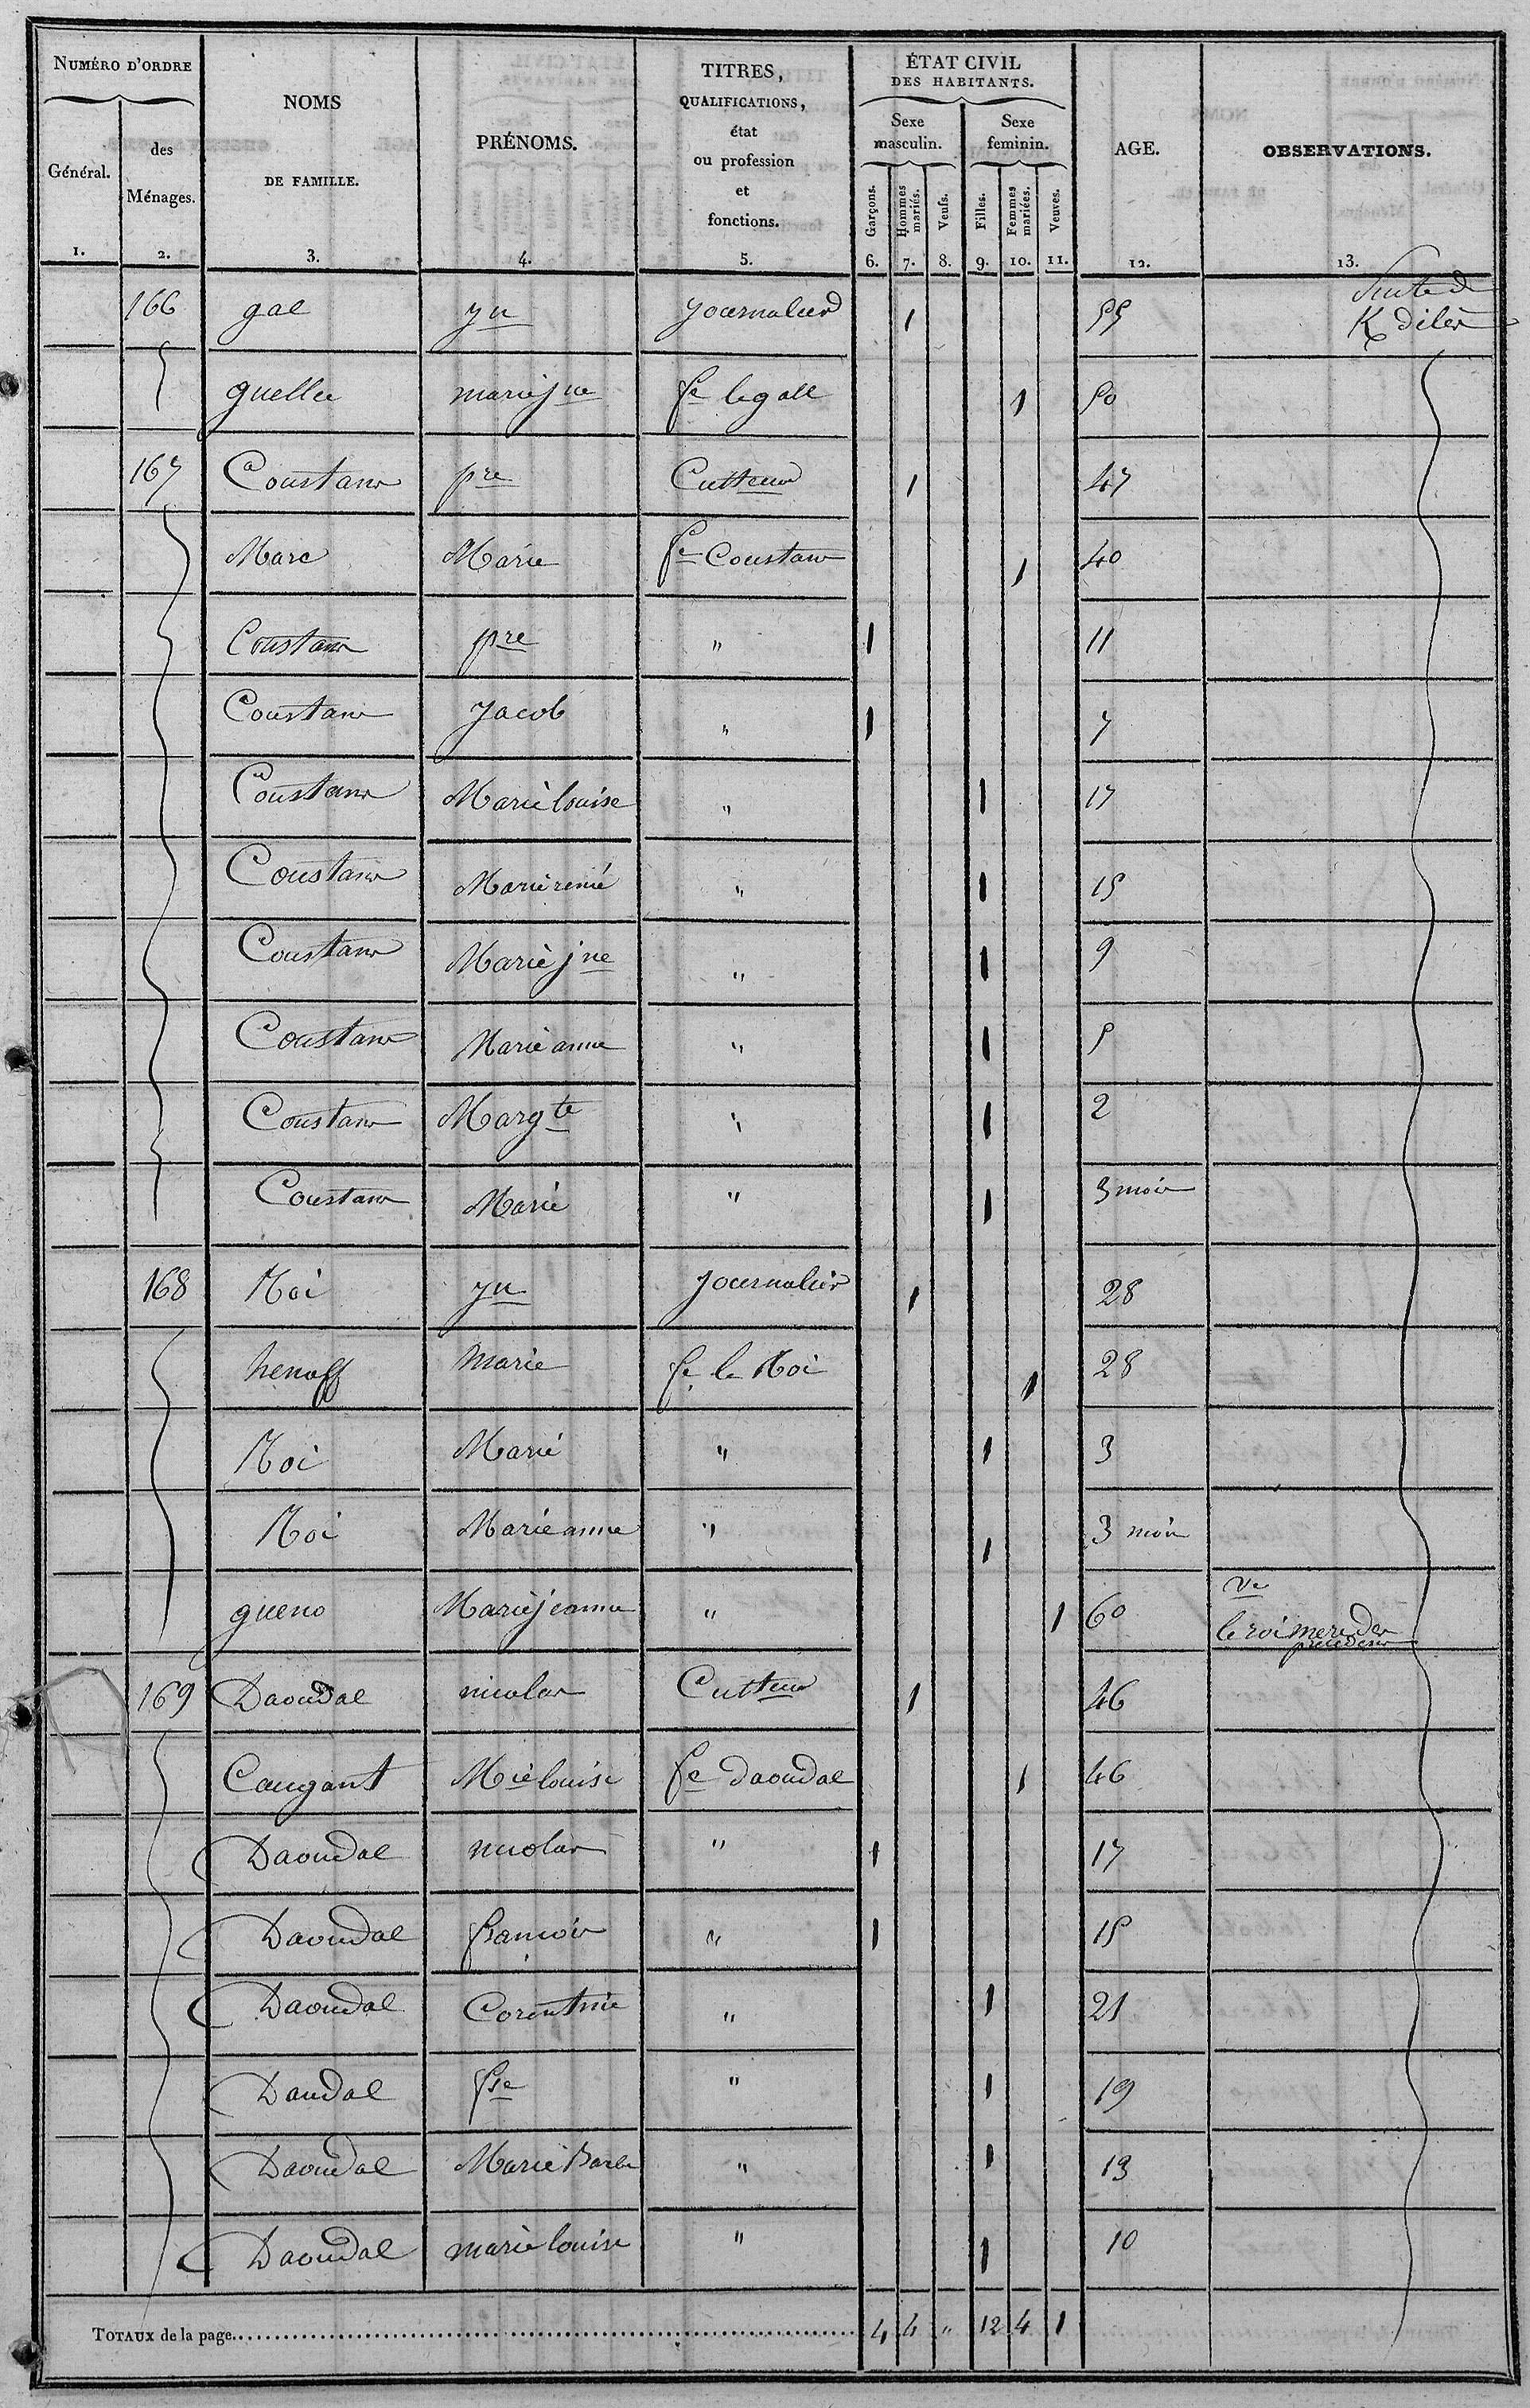 NUMÉRO D'ORDRE
Général.
des Ménages.
NOMS DE FAMILLE.
PRÉNOMS.
TITRES, QUALIFICATIONS, état ou profession et fonctions.
ÉTAT CIVIL DES HABITANTS.
Sexe masculin.
Sexe feminin.
Garçons.
Hommes mariés.
Veufs.
Filles.
Femmes mariées.
Veuves.
AGE.
OBSERVATIONS.
1. 2. 3. 4. 5. 6. 7. 8. 9. 10. 11. 12. 13.
166 gal yn journalier 1 55 Suite de K diler
guellec marie jne fe le gall 1 50
167 Coustans pre Cultteur 1 47
Marc Marie fe Coustans 1 40
Coustans pre " 1 11
Coustans Jacob " 1 7
Coustans Marie louise " 1 17
Coustans Marie renié " 1 15
Coustans Marie jne " 1 9
Coustans Marie anne " 1 5
Coustans Margte " 1 2
Coustans Marie " 1 3 mois
168 Roi yn journalier 1 28
henaff Marie fe le Roi 1 28
Roi Marie " 1 3
Roi Marie anne " 1 3 mois
gueno Marie jeanne " 1 60 Ve le roi mere des precedens
169 Daoudal nicolas Cultteur 1 46
Caugant Mie louise fe daoudal 1 46
Daoudal nicolas " 1 17
Daoudal francois " 1 15
Daoudal Corentine " 1 21
Daudal fse " 1 19
Daoudal Marie Barbe " 1 13
Daoudal marie louise " 1 10
TOTAUX de la page 4 4 " 12 4 1